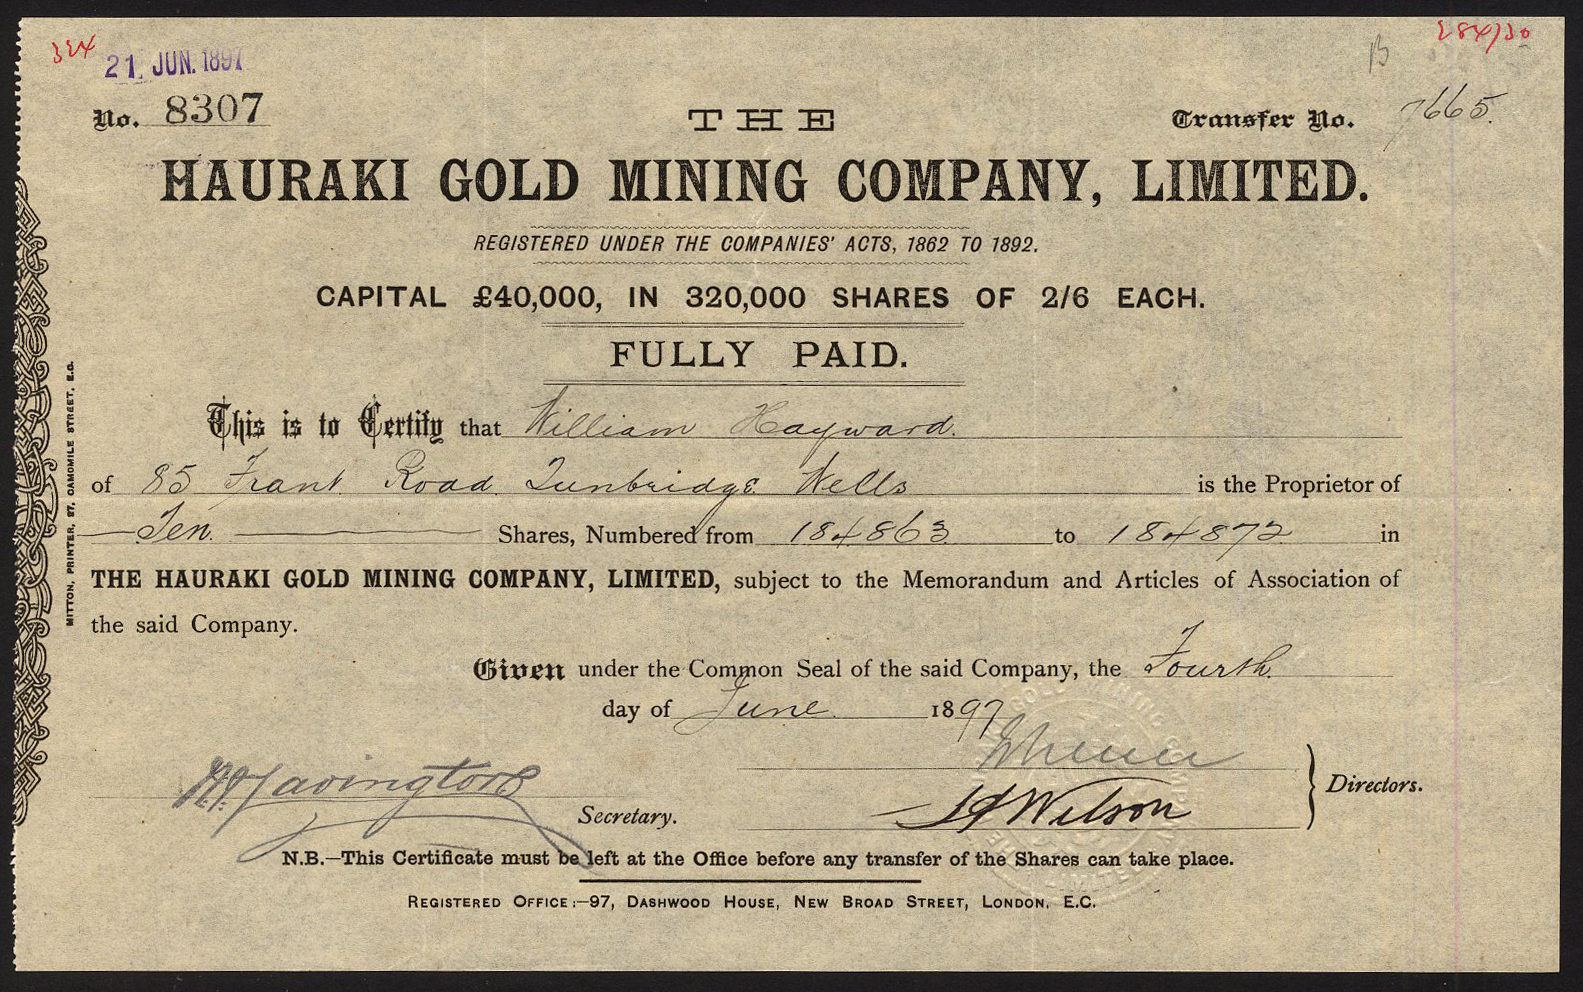 324
21. JUN. 1897
284/30
B
No. 8307
THE
Transfer No. 7665.
HAURAKI GOLD MINING COMPANY, LIMITED.
REGISTERED UNDER THE COMPANIES' ACTS, 1862 TO 1892.
CAPITAL £40,000, IN 320,000 SHARES OF 2/6 EACH.
FULLY PAID.
This is to Certify that William Hayward.
of 85 Frant Road Tunbridge Wells is the Proprietor of
Ten. Shares, Numbered from 184863 to 184872 in
THE HAURAKI GOLD MINING COMPANY, LIMITED, subject to the Memorandum and Articles of Association of
the said Company.
Given under the Common Seal of the said Company, the Fourth
day of June 1897
Directors.
Secretary.
Wilson
N.B.—This Certificate must be left at the Office before any transfer of the Shares can take place.
REGISTERED OFFICE:—97, DASHWOOD HOUSE, NEW BROAD STREET, LONDON, E.C.
MITTON, PRINTER, 27, CAMOMILE STREET, E.C.